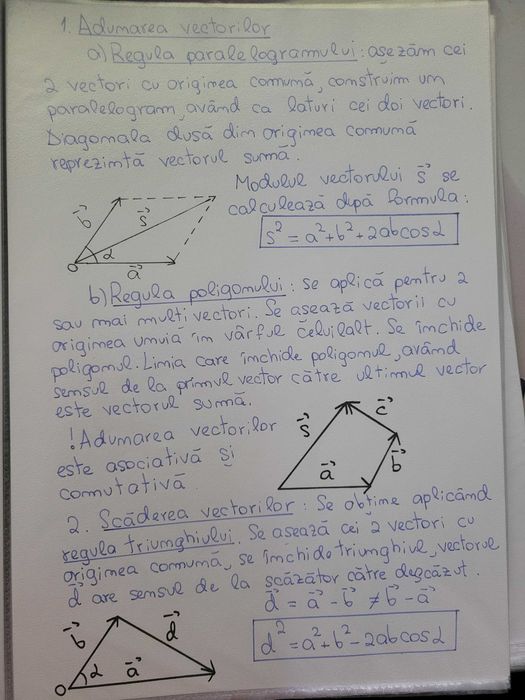 1. Adunarea vectorilor
a) Regula paralelogramului: așezăm cei
2 vectori cu originea comună, construim un
paralelogram, având ca laturi cei doi vectori.
Diagonala dusă din originea comună
reprezintă vectorul sumă.
Modulul vectorului s⃗ se
calculează după formula:
s² = a² + b² + 2ab cos α
b⃗
s⃗
α
O
a⃗
b) Regula poligonului: se aplică pentru 2
sau mai mulți vectori. Se așează vectorii cu
originea unuia în vârful celuilalt. Se închide
poligonul. Linia care închide poligonul, având
sensul de la primul vector către ultimul vector
este vectorul sumă.
! Adunarea vectorilor
este asociativă și
comutativă
s⃗
c⃗
a⃗
b⃗
2. Scăderea vectorilor: Se obține aplicând
regula triunghiului. Se așează cei 2 vectori cu
originea comună, se închide triunghiul, vectorul
d⃗ are sensul de la scăzător către descăzut.
d⃗ = a⃗ - b⃗ ≠ b⃗ - a⃗
d² = a² + b² - 2ab cos α
b⃗
d⃗
α
a⃗
O